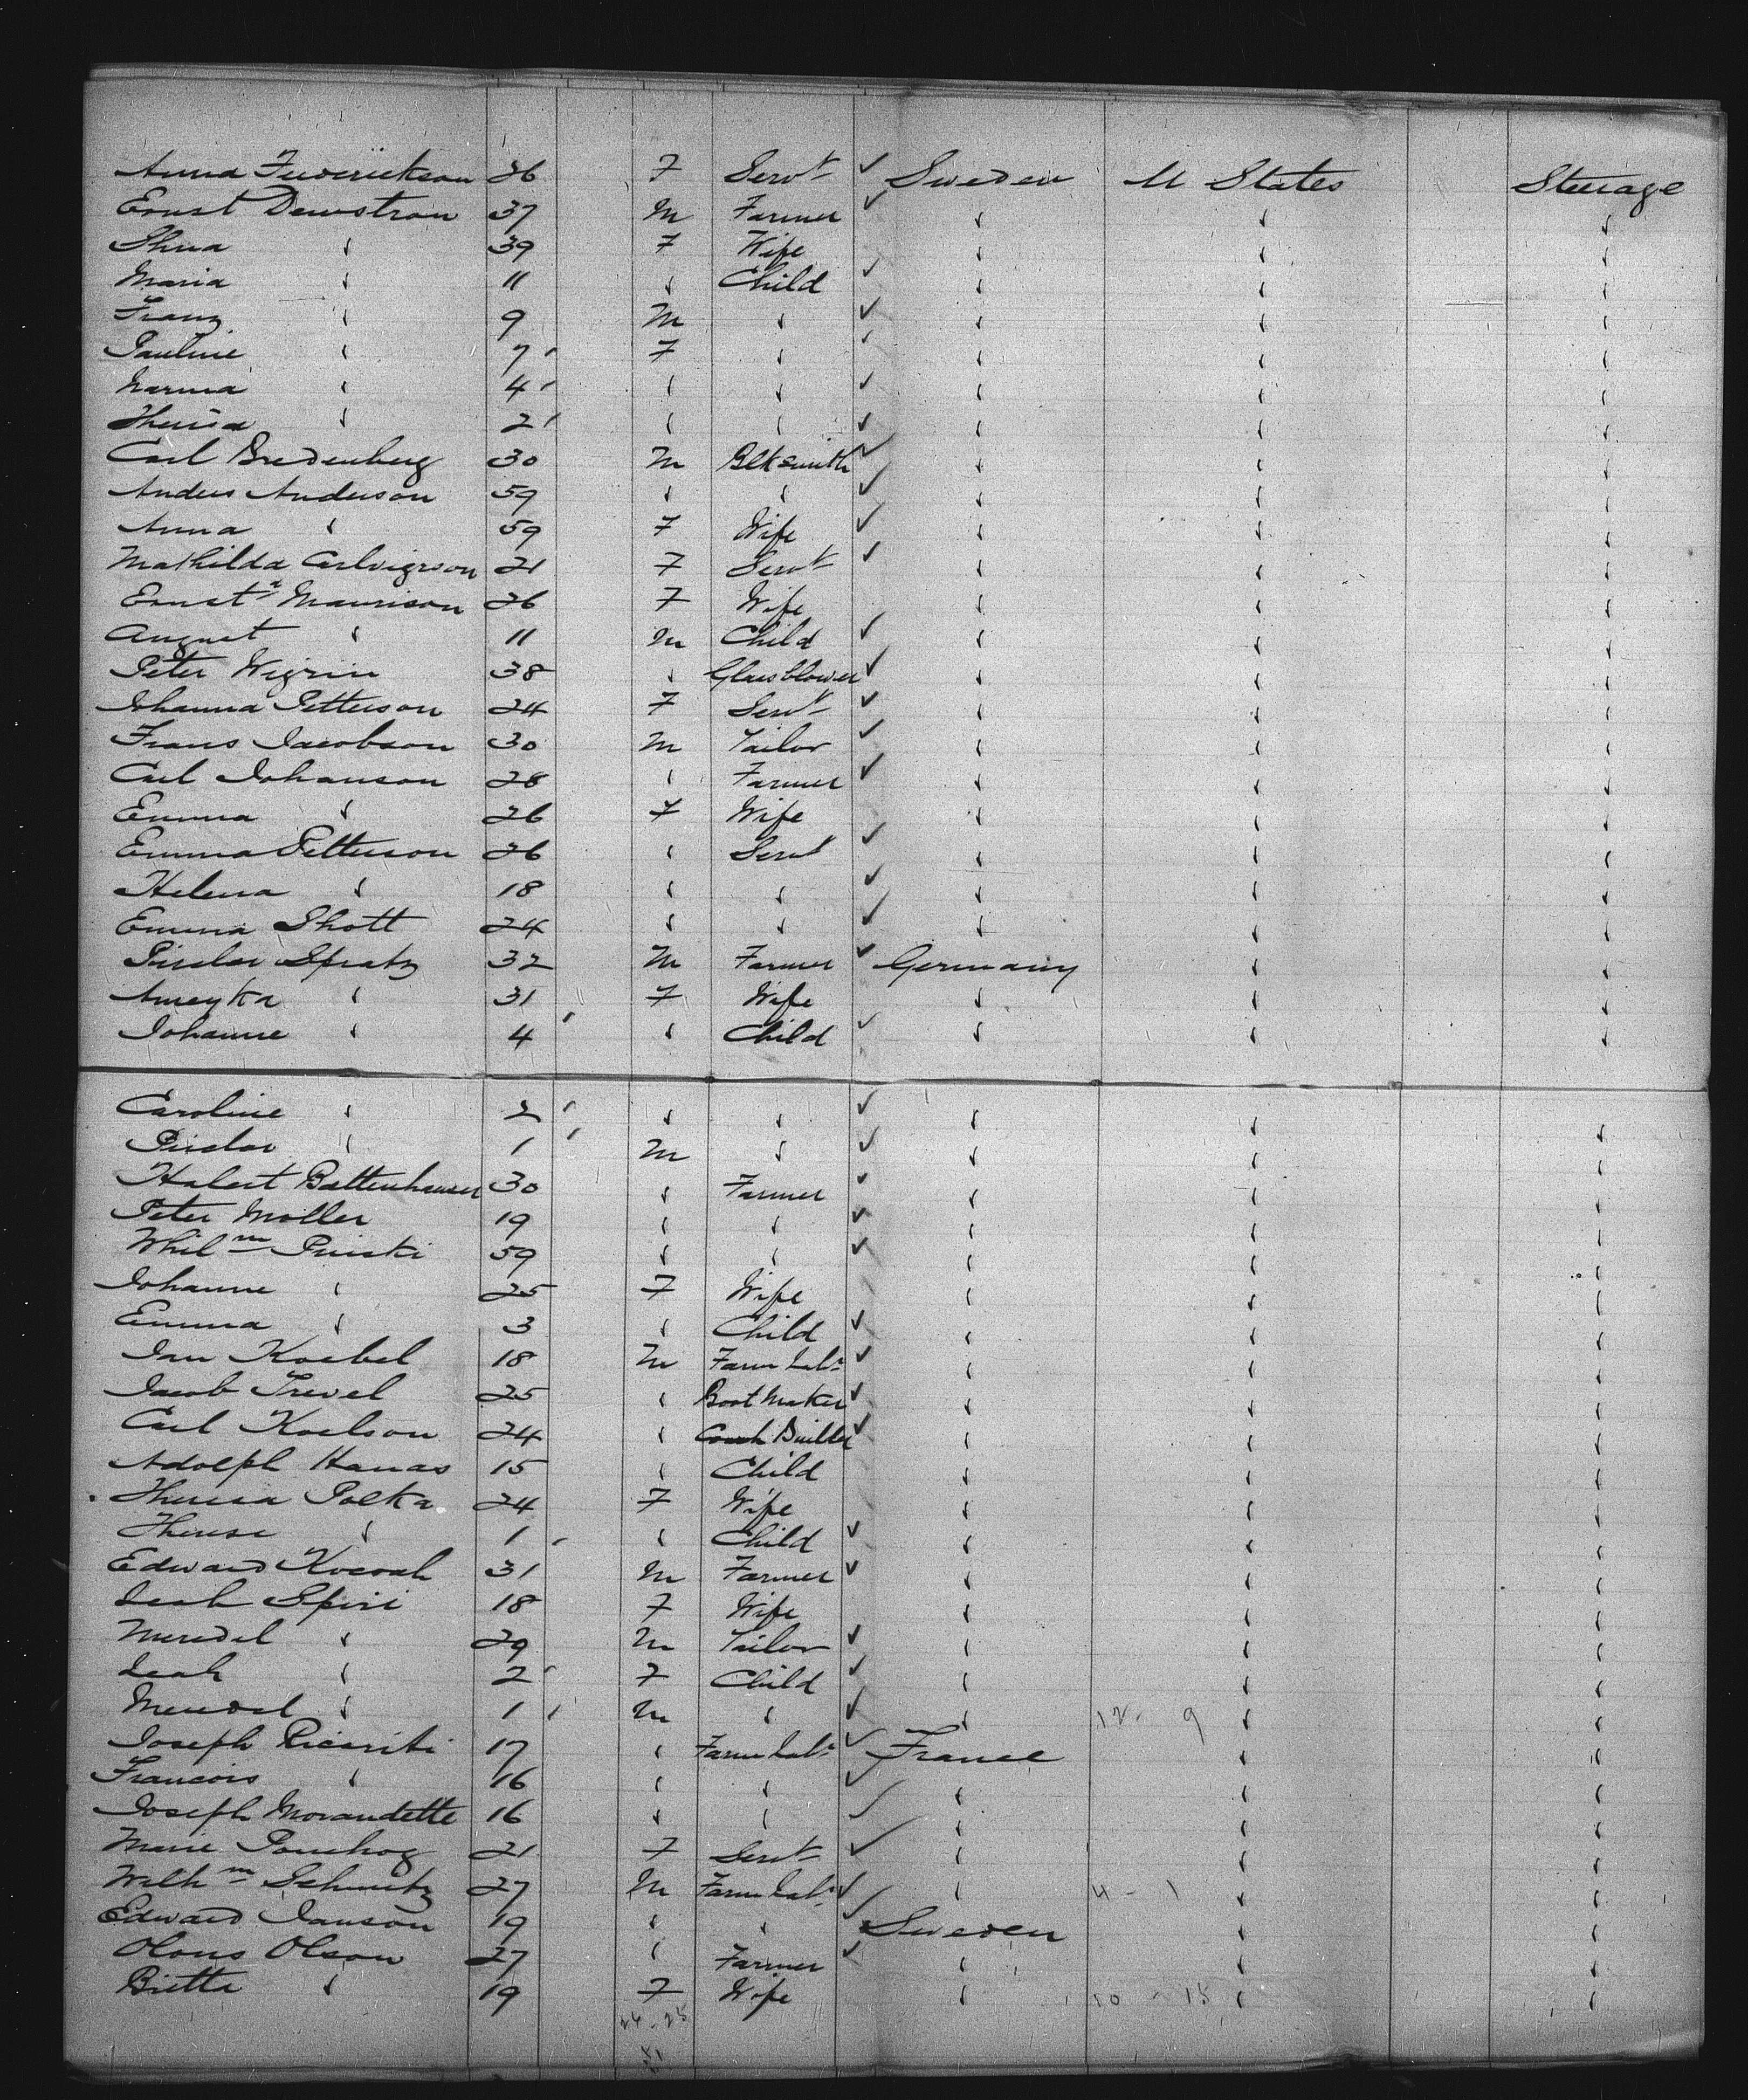 Anna Frederickson 26 F Servt ✓ Sweden U States Steerage
Ernst Dewstrom 37 M Farmer ✓ " " "
" 39 F Wife " " "
Maria " 11 " Child ✓ " " "
Franz " 9 M " ✓ " " "
Pauline " 7 F " ✓ " " "
Narma " 4 " " ✓ " " "
" 2 " " ✓ " " "
Carl Bredenberg 30 M Blksmith ✓ " " "
Anders Anderson 59 " " ✓ " " "
Anna " 59 F Wife ✓ " " "
Mathilda 21 F Servt ✓ " " "
Ernsta Maurison 26 F Wife " " "
August " 11 M Child ✓ " " "
Peter Wigrin 38 " Glassblower ✓ " " "
Johanna Petterson 24 F Servt ✓ " " "
Frans Jacobson 30 M Tailor ✓ " " "
Carl Johanson 28 " Farmer ✓ " " "
Emma " 26 F Wife " " "
Emma Petterson 26 " Servt ✓ " " "
Helena " 18 " " ✓ " " "
Emma Shott 24 " " ✓ " " "
Spratz 32 M Farmer ✓ Germany " "
Ameyka " 31 F Wife " " "
Johanne " 4 " Child ✓ " " "
Caroline " 2 " " ✓ " " "
" 1 M " ✓ " " "
Halert Battenhauser 30 " Farmer ✓ " " "
Peter Moller 19 " " ✓ " " "
Whilm 59 " " ✓ " " "
Johanne " 25 F Wife " " "
Emma " 3 " Child ✓ " " "
Jan Koebel 18 M Farm Labr ✓ " " "
Jacob Trevel 25 " Boot Maker ✓ " " "
Carl Koelson 24 " Coach Builder ✓ " " "
Adolph Hanas 15 " Child " " "
Theresa Polka 24 F Wife " " "
Therese " 1 " Child ✓ " " "
Edward 31 M Farmer ✓ " " "
Leah Spiri 18 F Wife " " "
" 29 M Tailor ✓ " " "
Leah " 2 F Child ✓ " " "
Mendel " 1 M " ✓ " 12 - 9 " "
Joseph 17 " Farm Labr ✓ France " "
Francois " 16 " " ✓ " " "
Joseph Morandette 16 " " ✓ " " "
Marie 21 F Servt ✓ " " "
Wilhm Schmitz 27 M Farm Labr ✓ " 4 - 1 " "
Edward Janson 19 " " ✓ Sweden " "
Olous Olson 27 " Farmer ✓ " " "
Britta " 19 F Wife " 10 - 15 " "